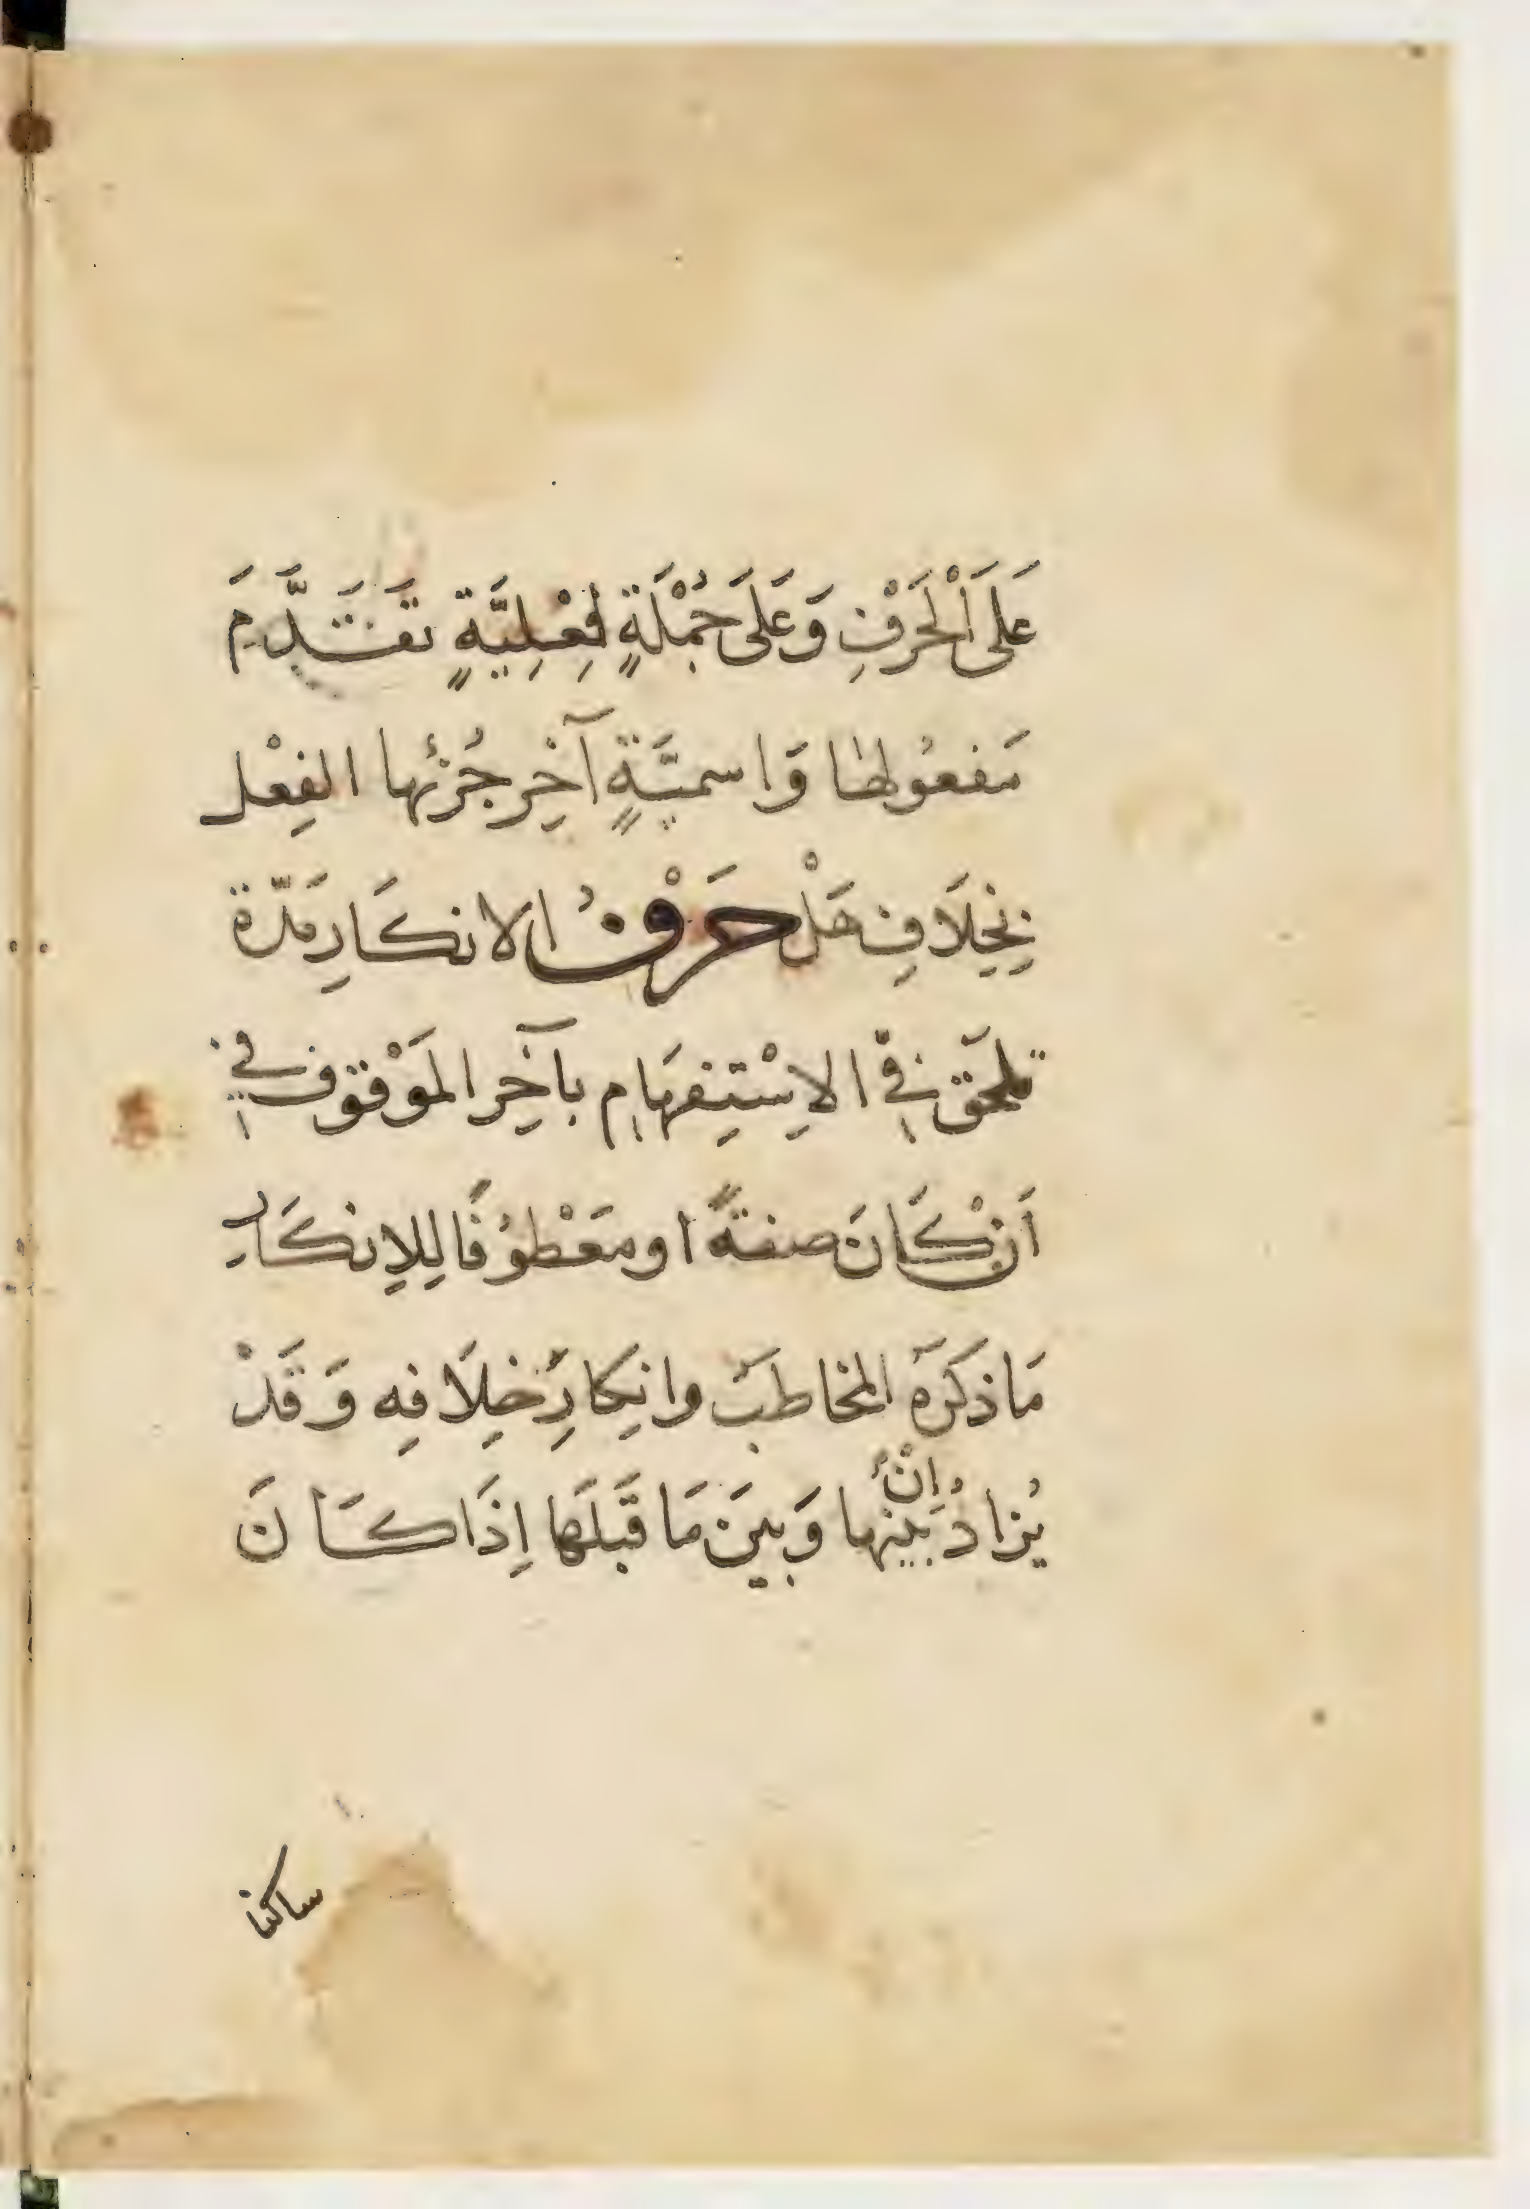 عَلَى اَلْحَرْفِ وَعَلَى جُمْلَةٍ فِعْلِيَّةٍ تَقَدَّمَ
مَفعُولُهٰا وَاسميَّةٍ آخِر جُزئِها الفِعْل
بِخِلَافِ هَلْ حَرْفُ الانكَارِ مَدّة
تلحَق فِي الاِسْتِفهَامِ بآخِر المَوْقوف فِي
اَنْ كَانَ صفةً او معَطْوُفًا لِلاِنكَارِ
مَا ذَكَرَهَ المخاطبَ وانِكارِ خِلَافِه وَقَدْ
يُزادُ اِنْ بَينها وَبينَ مَا قَبلَهَا اِذَا كَانَ
ساكنا